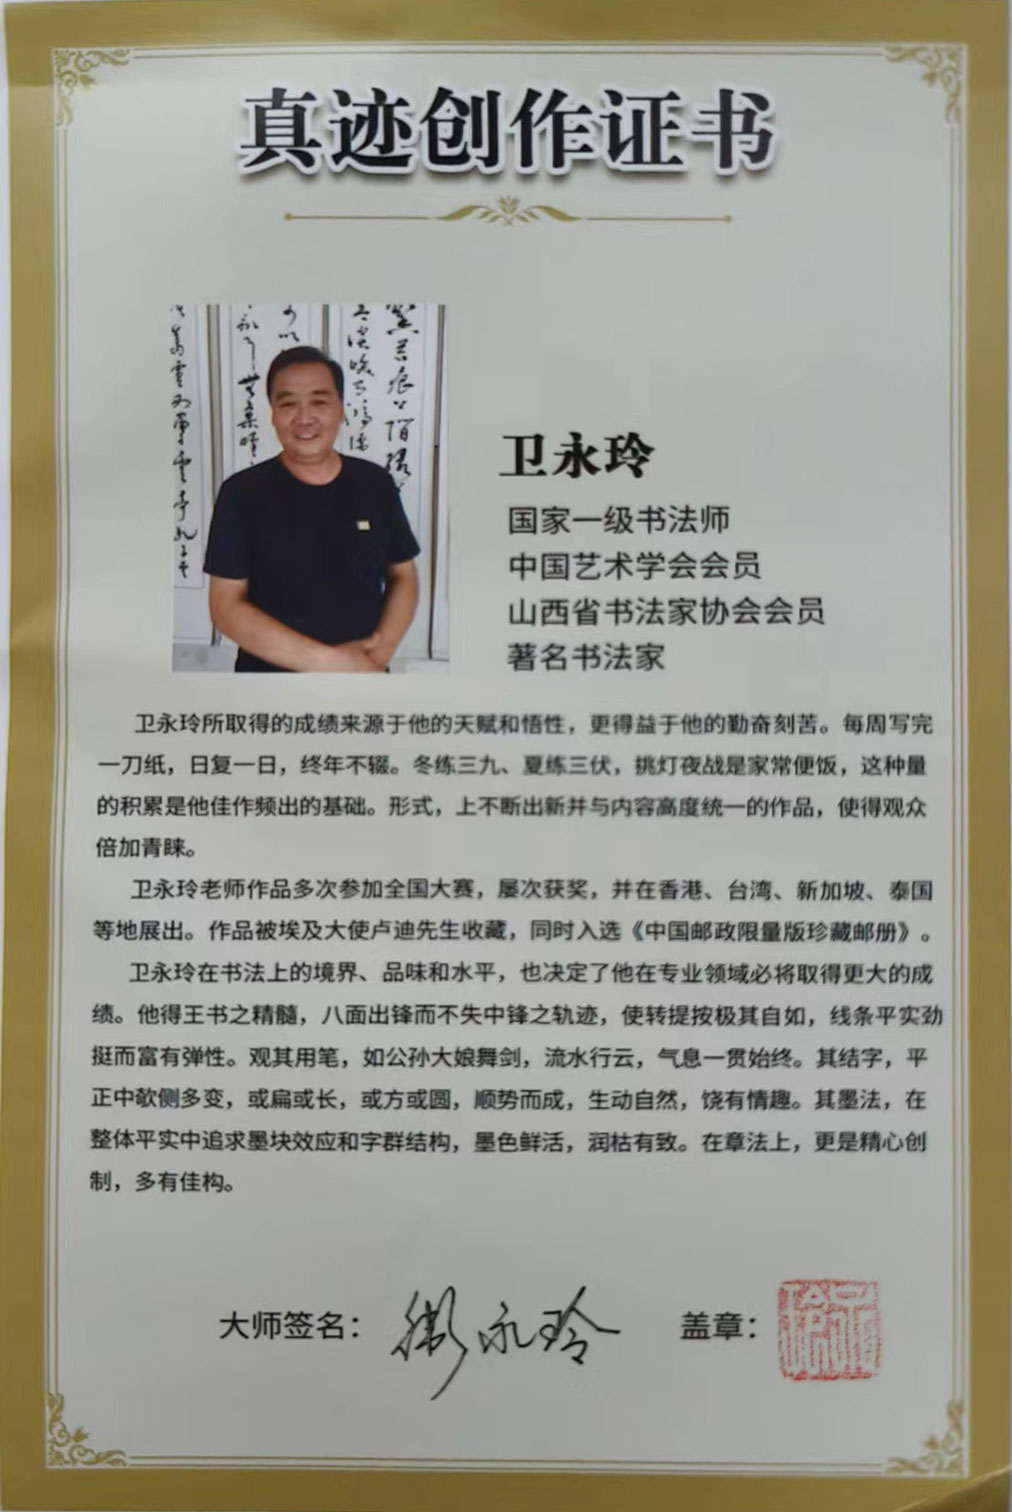 真迹创作证书
卫永玲
国家一级书法师
中国艺术学会会员
山西省书法家协会会员
著名书法家
卫永玲所取得的成绩来源于他的天赋和悟性，更得益于他的勤奋刻苦。每周写完
一刀纸，日复一日，终年不辍。冬练三九、夏练三伏，挑灯夜战是家常便饭，这种量
的积累是他佳作频出的基础。形式，上不断出新并与内容高度统一的作品，使得观众
倍加青睐。
卫永玲老师作品多次参加全国大赛，屡次获奖，并在香港、台湾、新加坡、泰国
等地展出。作品被埃及大使卢迪先生收藏，同时入选《中国邮政限量版珍藏邮册》。
卫永玲在书法上的境界、品味和水平，也决定了他在专业领域必将取得更大的成
绩。他得王书之精髓，八面出锋而不失中锋之轨迹，使转提按极其自如，线条平实劲
挺而富有弹性。观其用笔，如公孙大娘舞剑，流水行云，气息一贯始终。其结字，平
正中欹侧多变，或扁或长，或方或圆，顺势而成，生动自然，饶有情趣。其墨法，在
整体平实中追求墨块效应和字群结构，墨色鲜活，润枯有致。在章法上，更是精心创
制，多有佳构。
大师签名：衛永玲 盖章：